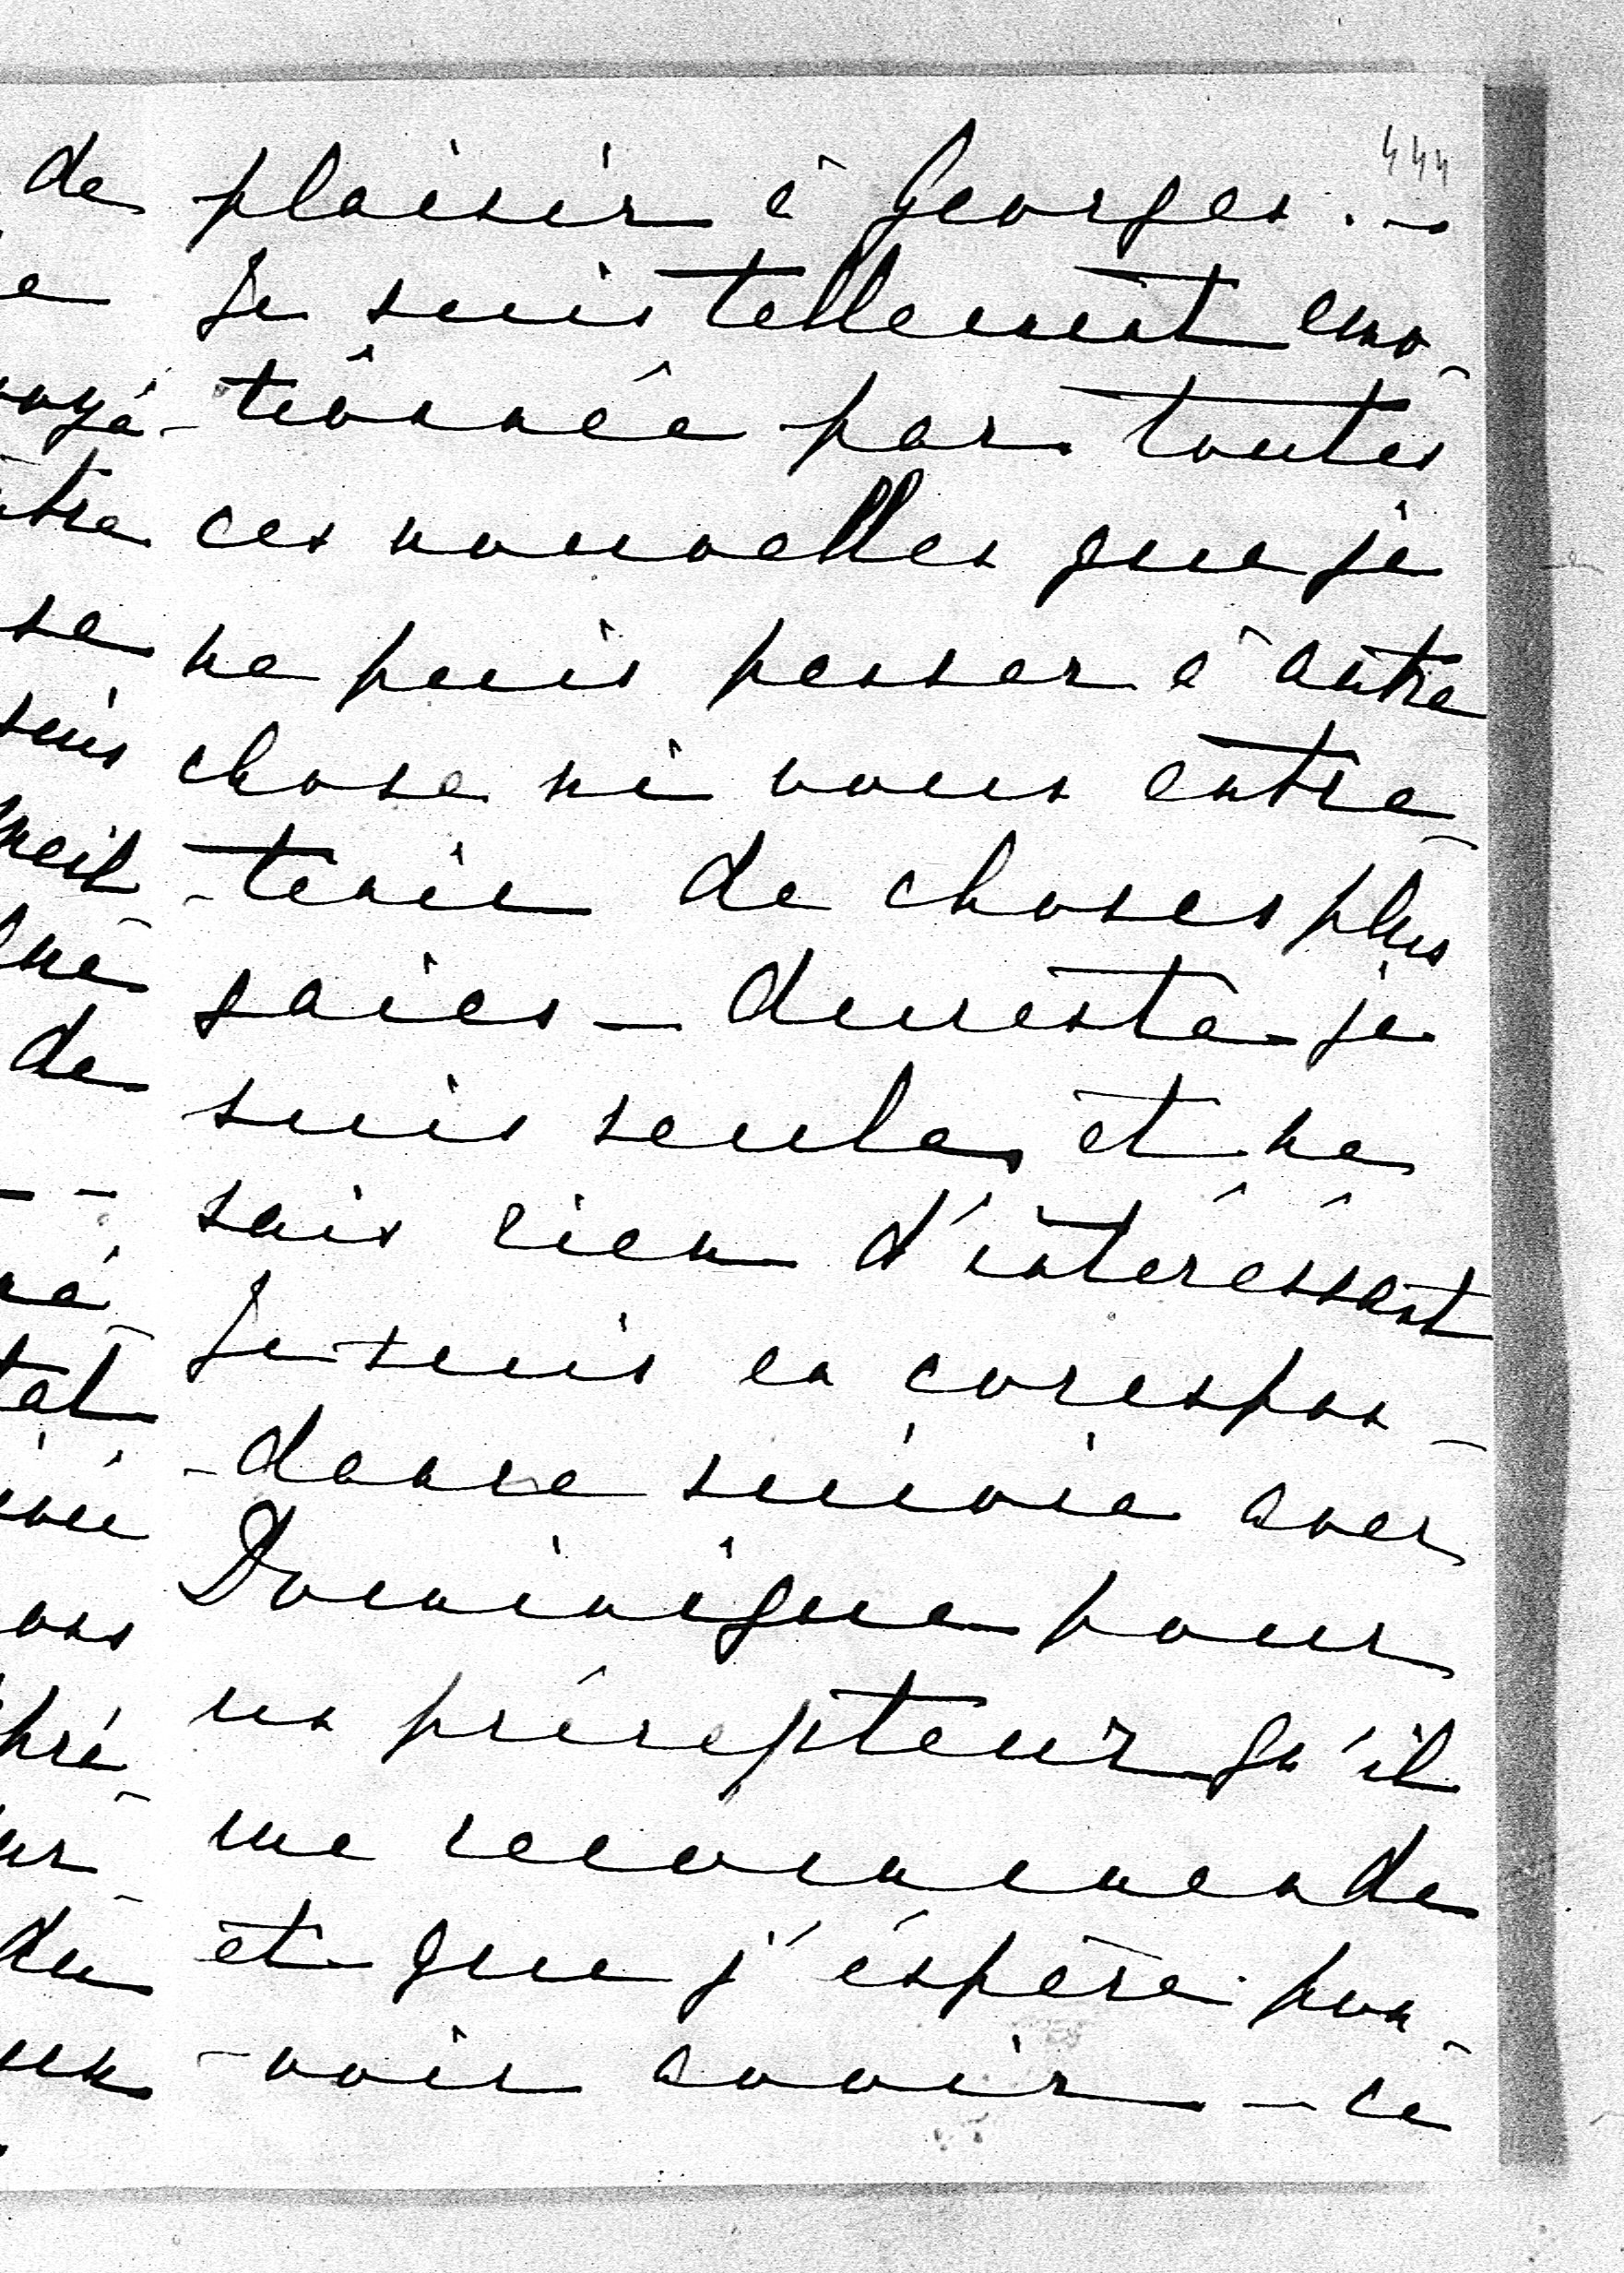 444
plaisir à Georges. —
Je suis tellement emo-
tionnée par toutes
ces nouvelles que je
ne puis penser à autre
chose ni vous entre-
-tenir de choses plus
gaies — dureste je
suis seule, et ne
sais rien d'intéréssant
Je suis en corespon-
-dance suivie avec
Dominique pour
un précepteur qu'il
me recommende
et que j'éspère pou-
-voir avoir — ce